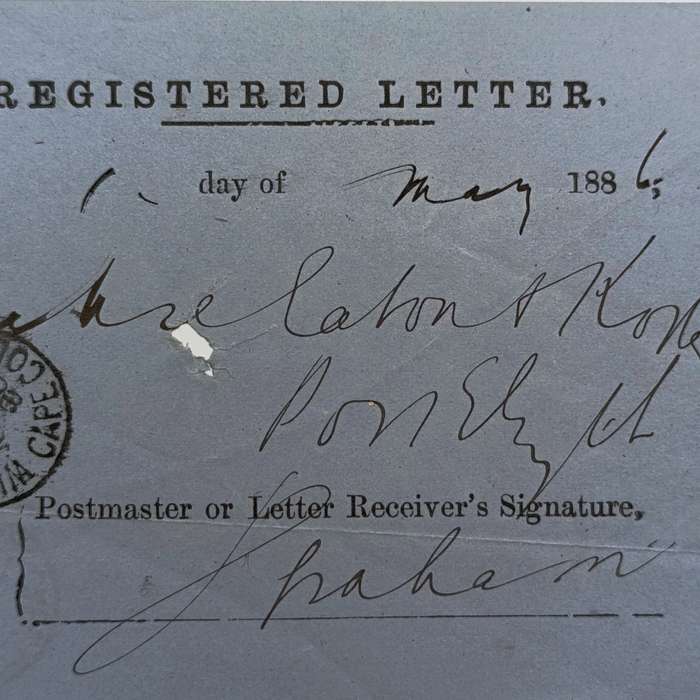 REGISTERED LETTER.
1. day of May 1886,
Caton & 
Port Elizth
CAPE CO
Postmaster or Letter Receiver's Signature,
Graham